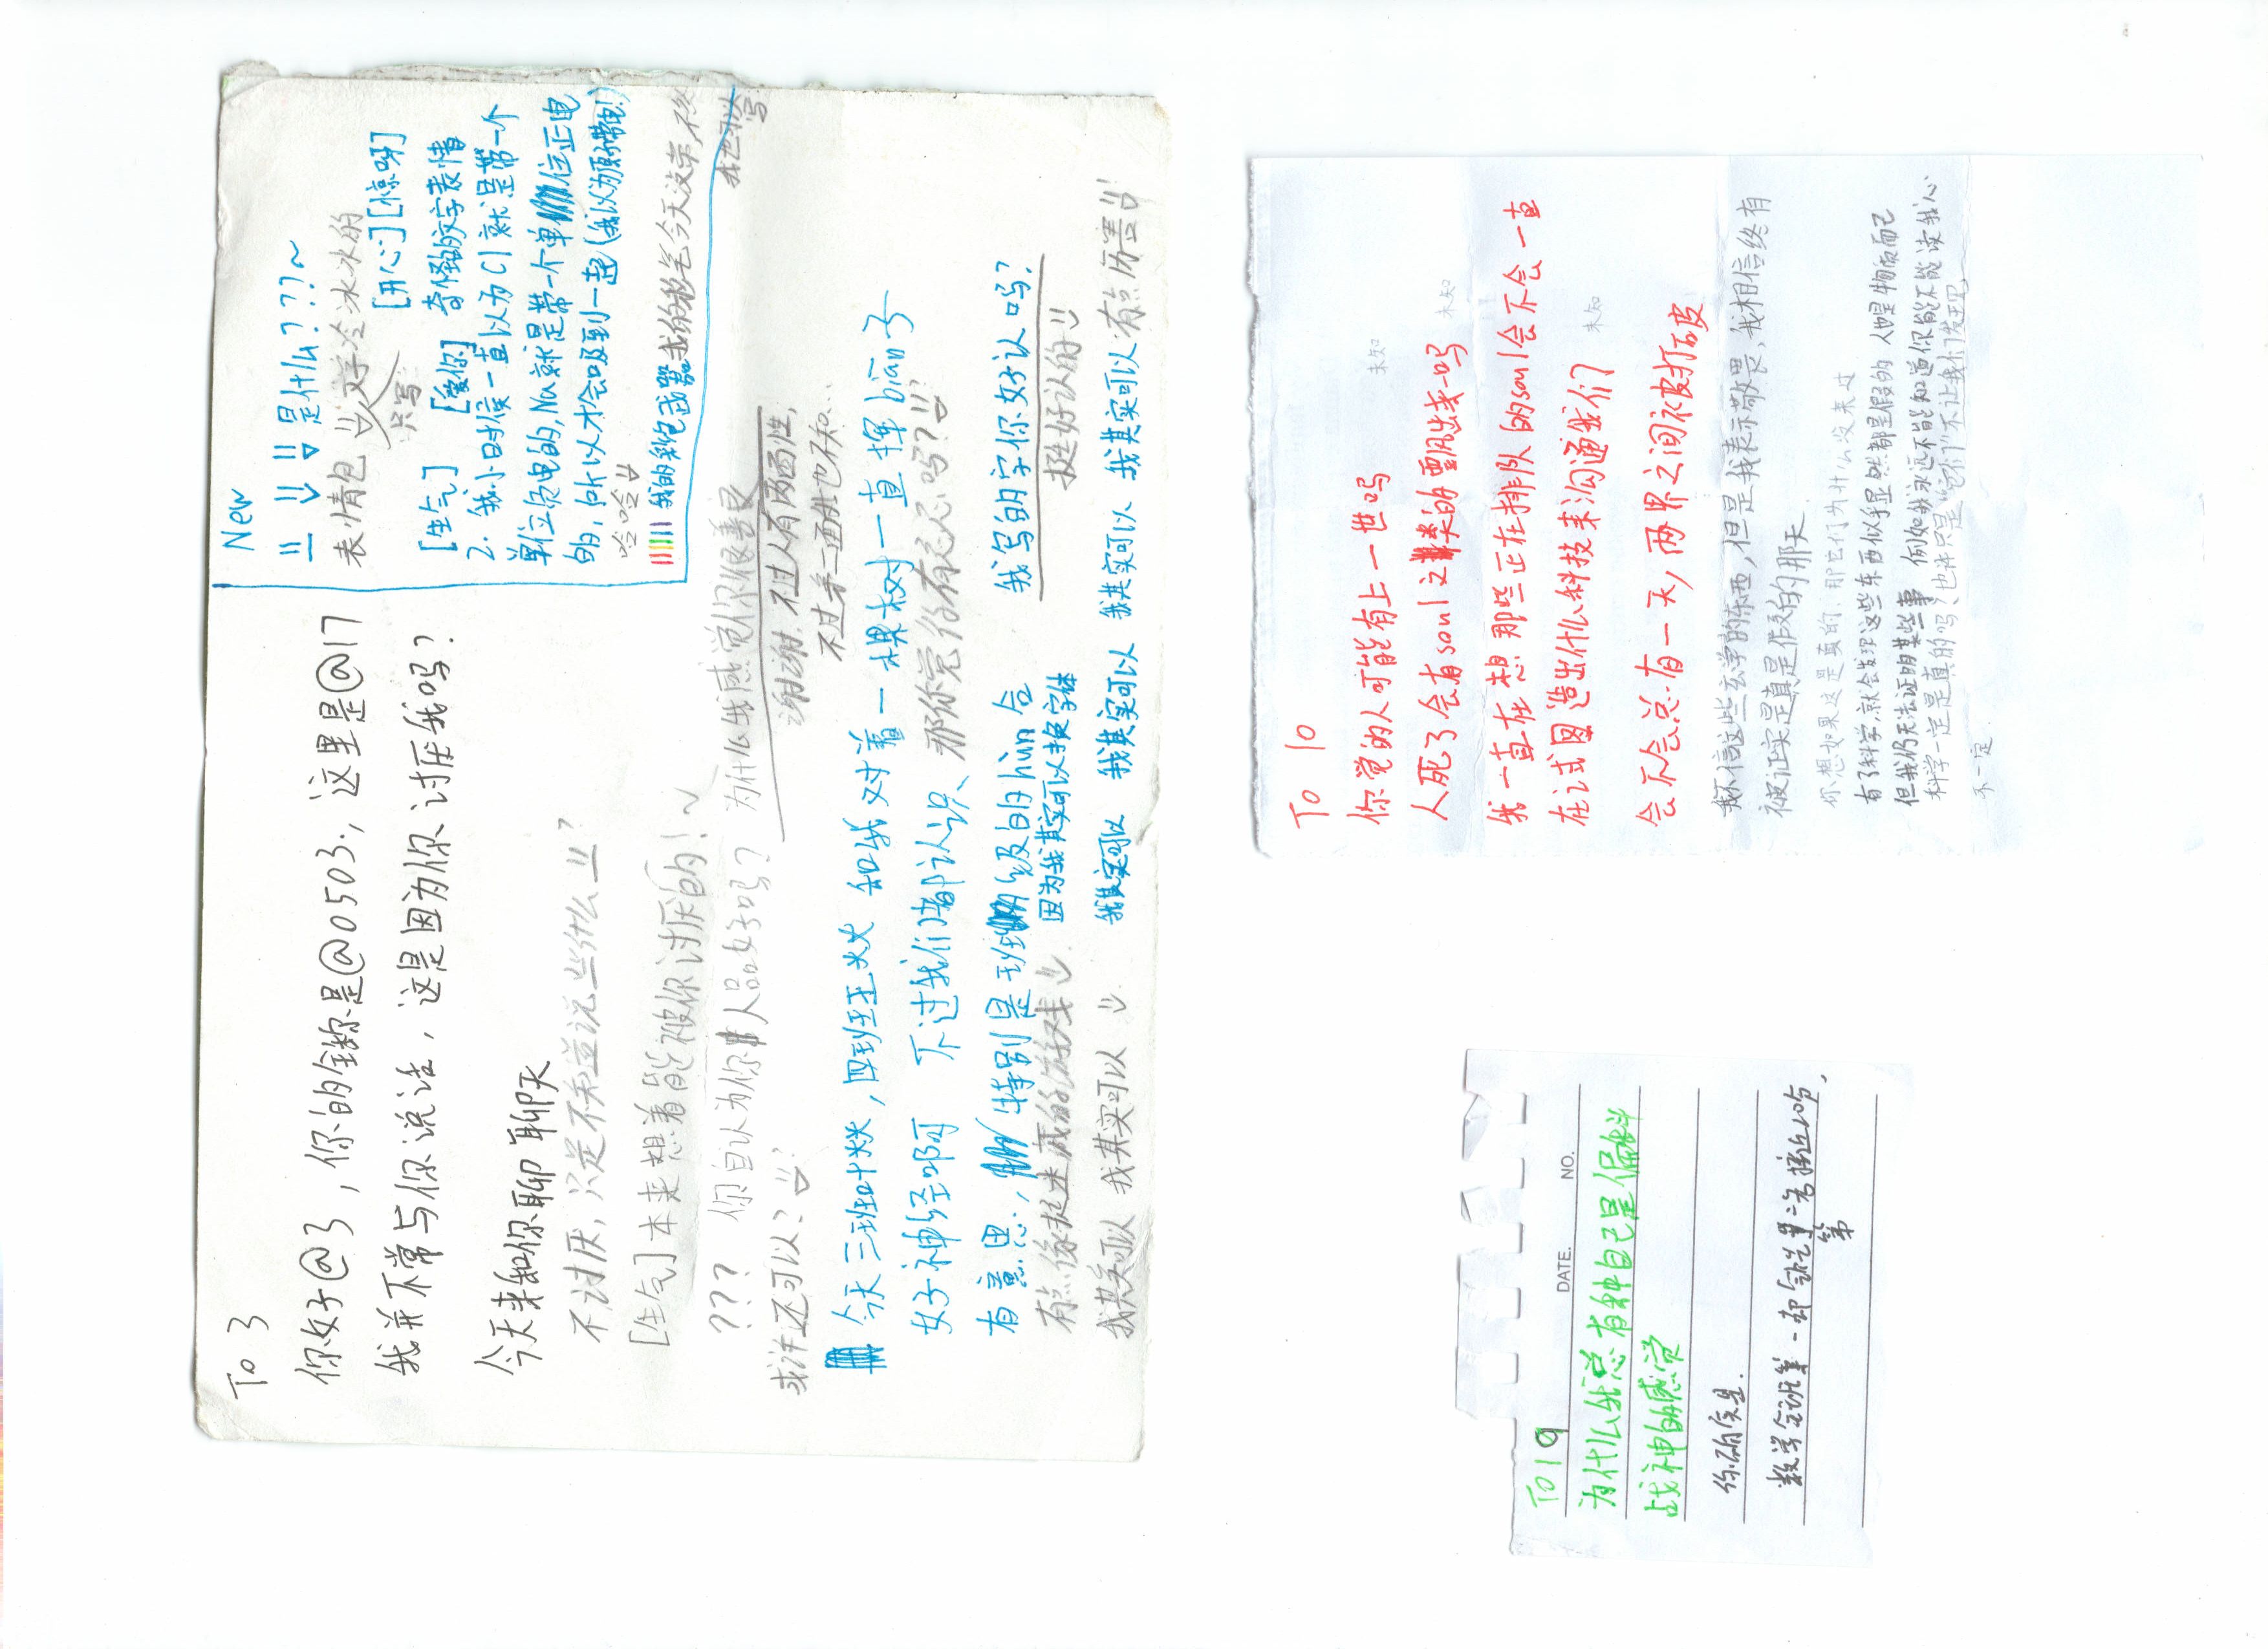 To 3
你好@3，你的全称是@0503.，这里是@17
我并不常与你说话，这是因为你讨厌我吗？
今天来和你聊聊天
不讨厌，只是不知道说些什么
[生气] 本来想着能被你讨厌的！~
??? 你自认为你人品好吗？ 为什么我感觉你很善良
或许还可以？
谢谢. 不过人有两面性，
不过另一面谁也不知…
今天三班叶炏，四班王炏 和我对着一棵树一直挥biān子
好神经啊 不过我们都认识、 那你觉得有意思吗？
有意思， 特别是班级的hùn合 我写的字你好认吗？
有点像挺进 的游戏 因为我其实可以换字体 挺好认的
我其实可以 我其实可以 我其实可以 我其实可以 我其实可以 有点厉害
New
是什么???~
表情包 文字冷冰冰的
只写
[开心][惊讶]
[生气] [爱你] 奇怪的文字表情
2. 我小时候一直以为Cl就是带一个
单位负电的,Na就是带一个单位正电
的, 所以才会吸到一起(我以为原子带电!)
哈哈哈
我的彩笔 我的彩笔今天没带,
我也可以写
To 10
你觉的人可能有上一世吗
未知
人死了会有soul之类的飘出来吗
未知
我一直在想那些正在排队的soul会不会一直
在试图造出什么科技来沟通我们
未知
会不会总有一天，两界之间被打破
我不信这些玄学的东西，但是我表示敬畏，我相信终有
被证实是真是假的那天
你想如果这是真的，那它们为什么没来过
有了科学,就会发现这些东西似乎显然都是假的 人也是物而已
但我仍无法证明某些事 例如我永远不能知道你能不能读我心
科学一定是真的吗？也许只是“它们”不让我们发现,
不一定
To 19
DATE. NO.
为什么我总有种自己是偏科
战神的感觉
你确实是.